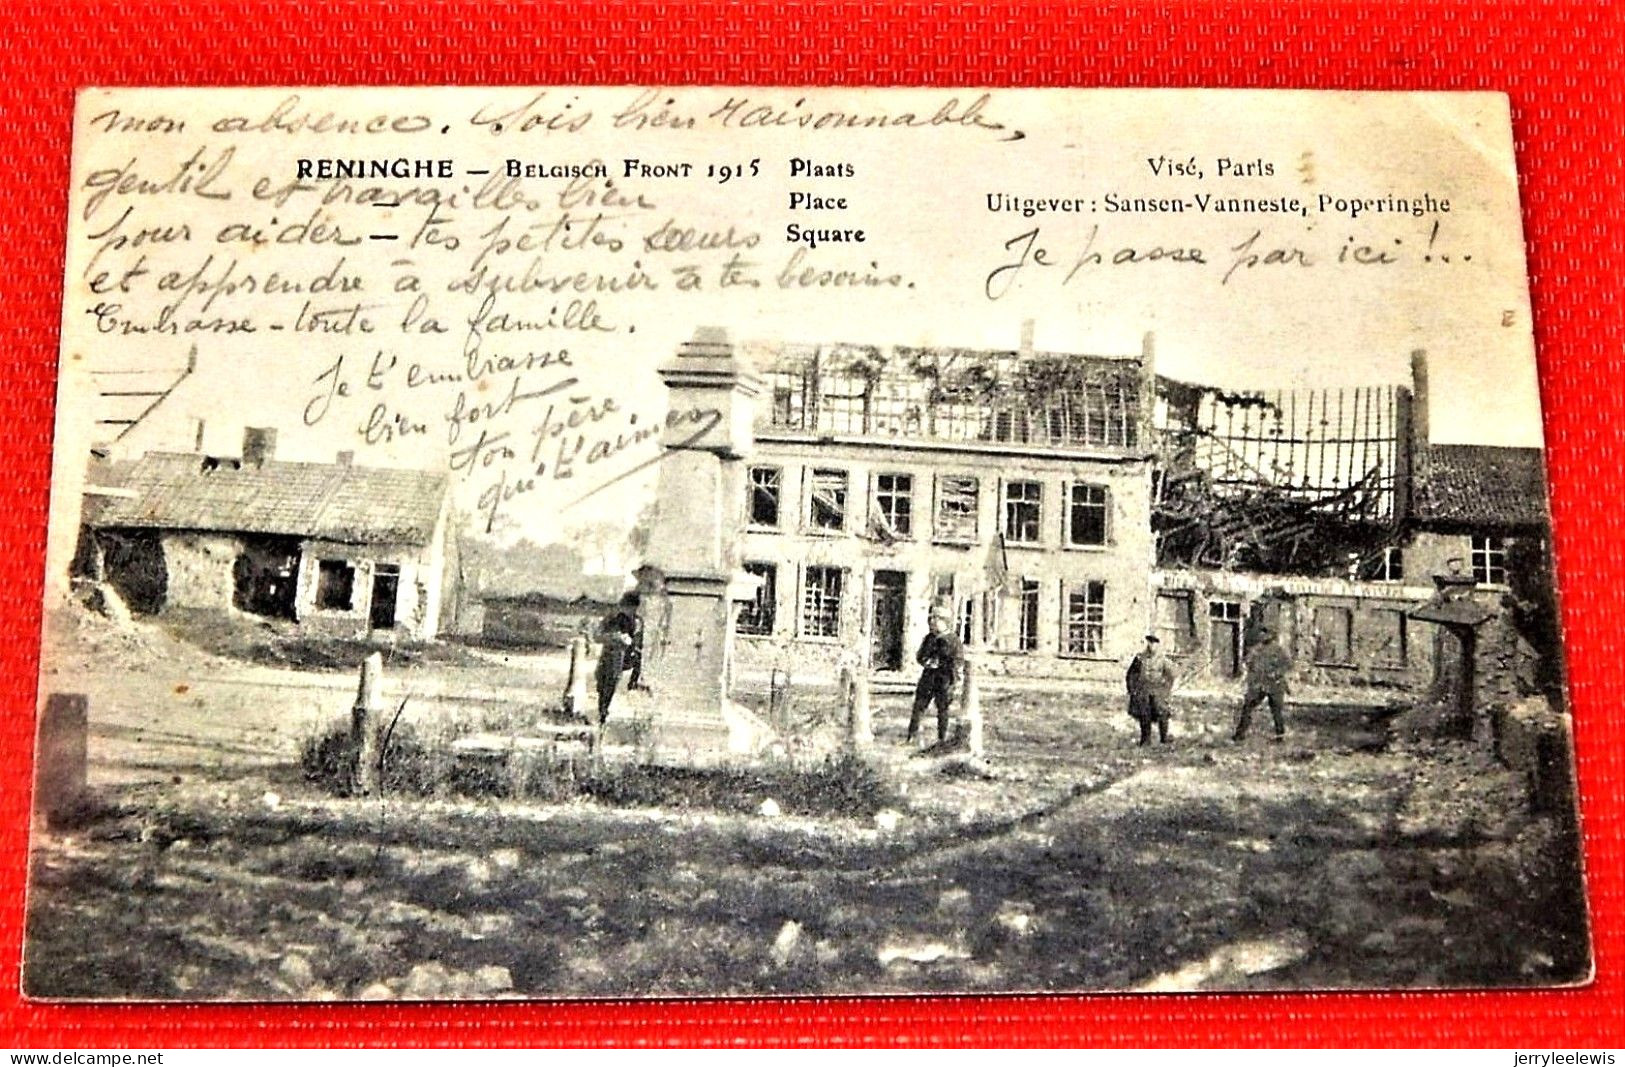 mon absence. Sois bien raisonnable,
RENINGHE — BELGISCH FRONT 1915 Plaats
Place
Square
Visé, Paris
Uitgever : Sansen-Vanneste, Poperinghe
gentil et travailles bien
pour aider – tes petites sœurs
et apprendre à subvenir à tes besoins.
Embrasse – toute la famille.
Je passe par ici !..
Je t'embrasse
bien fort
ton père,
qui t'aime
delcampe.net
jerryleelewis